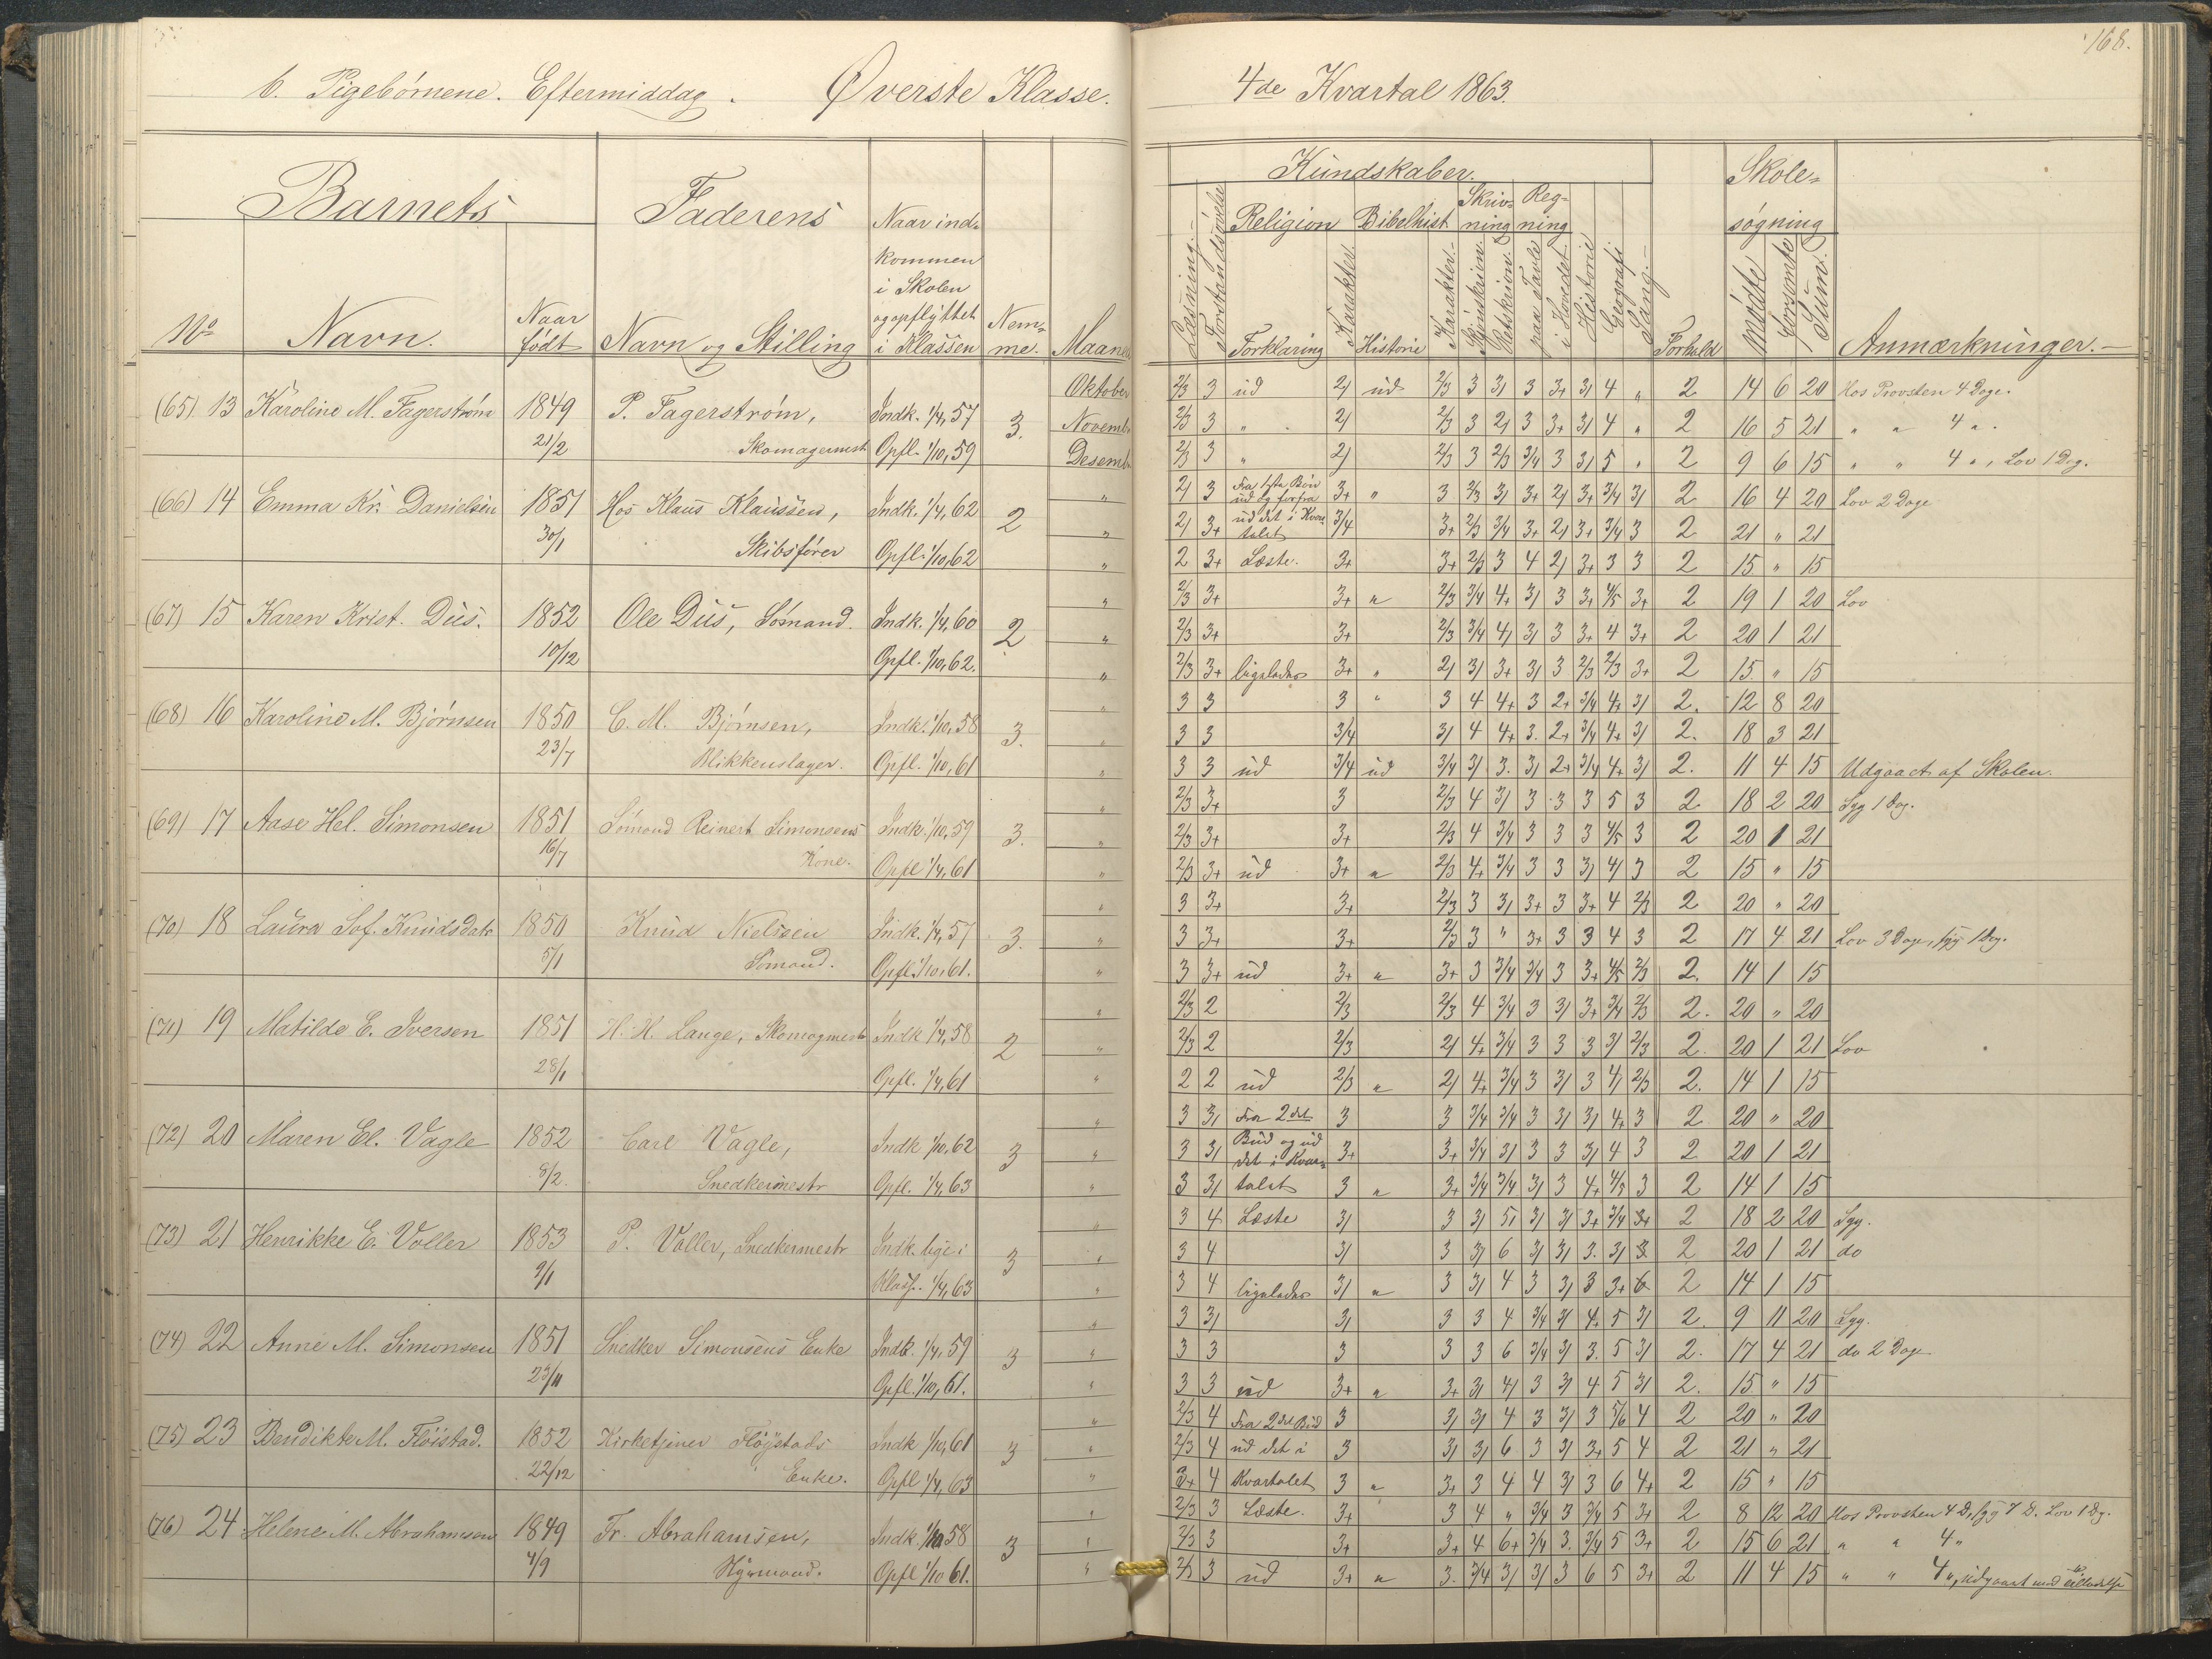 168.
b. Pigebørnene. Eftermiddag. Øverste Klasse.
4de Kvartal 1863.
Barnets Faderens Naar ind-
kommen
i Skolen
og opflyttet
i Klassen
No Navn. Naar
født Navn og Stilling Nem-
me.
Kundskaber.
Læsning.
Forstandsøvelse
Religion Bibelhist. Skriv-
ning Reg-
ning
Forklaring Karakter. Historie Karakter. Skjønskrivn. Retskrivn. paa Tavle i Hovedet. Historie Geografi Sang.
Forhold
Skole-
søgning
mødte forsømte Sum.
Anmærkninger.
(65) 13 Karoline M. Fagerstrøm 1849 P. Fagerstrøm, Indk. 1/4, 57 3.
21/2 Skomagermest Opfl. 1/10, 59
Oktober
2/3 3 ud 2/ ud 2/3 3 3/ 3 3+ 3/ 4 „ 2 14 6 20 Hos Provsten 4 Dage.
2/3 3 „ 2/ 2/3 3 2/ 3 3+ 3/ 4 „ 2 16 5 21 „ „ 4 „.
2/3 3 „ 2/ 2/3 3 2/3 3/4 3 3/ 5 „ 2 9 6 15 „ „ 4 „, Lov 1 Dag.
(66) 14 Emma Kr. Danielsen 1851 Hos Klaus Klaussen, Indk. 1/4, 62 2
30/1 Skibsfører Opfl. 1/10, 62
2/ 3 Fra 1ste Bøn
ud og forfra 3+ „ 3 2/3 3/ 3+ 2/ 3+ 3/4 3/ 2 16 4 20 Lov 2 Dage
2/ 3+ ud det i Kvar-
talet 3/4 3+ 2/3 3/4 3+ 2/ 3+ 3/4 3 2 21 „ 21
2 3+ Læste. 3+ 3+ 2/3 3 4 2/ 3+ 3 3 2 15 „ 15
(67) 15 Karen Krist. Dus. 1852 Ole Dus, Sømand. Indk. 1/4, 60 2
10/12 Opfl. 1/10, 62.
2/3 3+ 3+ „ 2/3 3/4 4+ 3/ 3 3+ 4/5 3+ 2 19 1 20 Lov
2/3 3+ 3+ 2/3 3/4 4/ 3/ 3 3+ 4 3+ 2 20 1 21
2/3 3+ ligeledes 3+ „ 2/ 3/ 3+ 3/ 3 2/3 2/3 3+ 2 15 „ 15
(68) 16 Karoline M. Bjørnsen 1850 C. M. Bjørnsen, Indk. 1/10, 58 3.
23/7 Blikkenslager. Opfl. 1/10, 61
3 3 3 „ 3 4 4+ 3 2+ 3/4 4+ 3/ 2. 12 8 20
3 3 3/4 3/ 4 4+ 3. 2+ 3/4 4+ 3/ 2. 18 3 21
3 3 ud 3/4 ud 3/4 3/ 3. 3/ 2+ 3/4 4+ 3/ 2. 11 4 15 Udgaaet af Skolen.
(69) 17 Aase Hel. Simonsen 1851 Sømand Reinert Simonsens Indk. 1/10, 59 3.
16/7 Kone. Opfl 1/4, 61
2/3 3+ 3 2/3 4 3/ 3 3 3 5 3 2 18 2 20 Syg 1 Dag.
2/3 3+ 3+ 2/3 4 3/4 3 3 3 4/5 3 2 20 1 21
2/3 3+ ud 3+ „ 2/3 4+ 3/4 3 3 3/ 4/ 3 2 15 „ 15
(70) 18 Laura Sof. Knudsdatr 1850 Knud Nielsen Indk. 1/4, 57 3.
5/1 Sømand. Opfl. 1/10, 61.
3 3+ 3+ 2/3 3 3/ 3+ 3 3+ 4 2/3 2 20 „ 20
3 3+ 3+ 2/3 3 „ 3+ 3 3 4 3 2 17 4 21 Lov 3 Dage, syg 1 Dag.
3 3+ ud 3+ „ 3+ 3 3/4 3/4 3 3+ 4/5 2/3 2. 14 1 15
(71) 19 Matilde E. Iversen 1851 H. H. Lange, Skomagmestr Indk 1/4, 58 2
28/1 Opfl. 1/4, 61
2/3 2 2/3 2/3 4 3/4 3 3/ 3+ 3/4 2/3 2. 20 „ 20
2/3 2 2/3 2/ 4+ 3/4 3 3 3 3/ 2/3 2. 20 1 21 Lov
2 2 ud 2/3 „ 2/ 4+ 3/4 3 3/ 3 4/ 2/3 2. 14 1 15
(72) 20 Maren El. Vagle 1852 Carl Vagle, Indk 1/10, 62 3
8/2. Snedkermestr Opfl. 1/4, 63
3 3/ Fra 2det 3 3 3/4 3/4 3 3/ 3/ 4+ 3 2. 20 „ 20
3 3/ Bud og ud
det i Kvar- 3+ 3+ 3/4 3/ 3 3 3/ 4 3 2 20 1 21
3 3/ talet 3 „ 3+ 3/4 3/4 3/ 3 4+ 4/5 3 2 14 1 15
(73) 21 Henrikke E. Voller 1853 P. Voller, Snedkermestr Indk. lige i 3
9/1 Klass. 1/4, 63
3 4 Læste 3/ 3 3/ 5/ 3/ 3/ 3+ 3/4 3+ 2 18 2 20 Syg.
3 4 3/ 3 3/ 6 3/ 3/ 3. 3/ 3 2 20 1 21 do
3 4 ligeledes 3/ „ 3 3/ 4 3 3/ 3 3+ 6 2 14 1 15
(74) 22 Anne M. Simonsen 1851 Snedker Simonsens Enke Indk. 1/4, 59 3
23/11 Opfl. 1/10, 61.
3 3/ 3/ 3 3 4 3/4 3/ 4+ 5 3/ 2. 9 11 20 Syg.
3 3 3 3 3 6 3/4 3/ 3. 5 3/ 2. 17 4 21 do 2 Dage
3 3 ud 3+ „ 3+ 3/ 4/ 3 3/ 4 5 3/ 2. 15 „ 15
(75) 23 Bendikte M. Fløistad. 1852 Kirketjener Fløystads Indk 1/10, 61 3
22/12 Enke. Opfl 1/4, 63
2/3 4 Fra 2det Bud 3 3/ 3/ 4 3 3/ 3 5/6 4 2 20 „ 20
2/3 4 ud det i 3 3/ 3/ 6 3 3/ 3+ 5 4 2 21 „ 21
3+ 4 Kvartalet 3 „ 3+ 3 4 4 3/ 3 6 4+ 2 15 „ 15
(76) 24 Helene M. Abrahamsen 1849 Fr. Abrahamsen, Indk 1/10 58 3
4/9 Opfl 1/10 61.
2/3 3 Læste. 3+ 3 4 „ 3/4 3 3/4 5 3+ 2 8 12 20 Hos Provsten 4 D, syg 7 D. Lov 1 Dg.
2/3 3 3+ 3+ 4 6+ 3/4 3. 3/4 5 3+ 2 15 6 21 „ „ 4 „
2/3 3 ud 3+ „ 3. 3/4 3/ 3/ 3 6 5 3+ 2 11 4 15 „ „ 4 „, udgaaet med